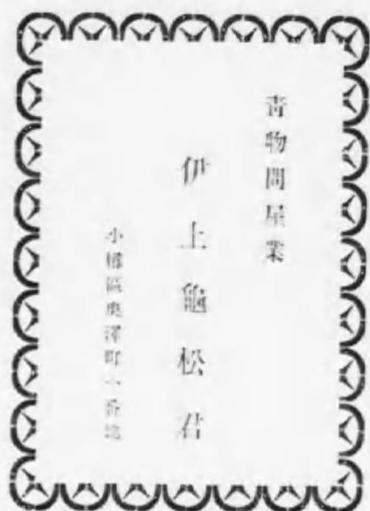 青物問屋業
伊上龜松君
小樽區奧澤町十番地